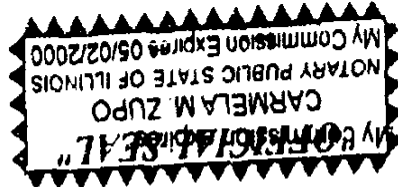 "OFFICIAL SEAL"
My Commission Expires
CARMELA M. ZUPO
NOTARY PUBLIC STATE OF ILLINOIS
My Commission Expires 05/02/2000